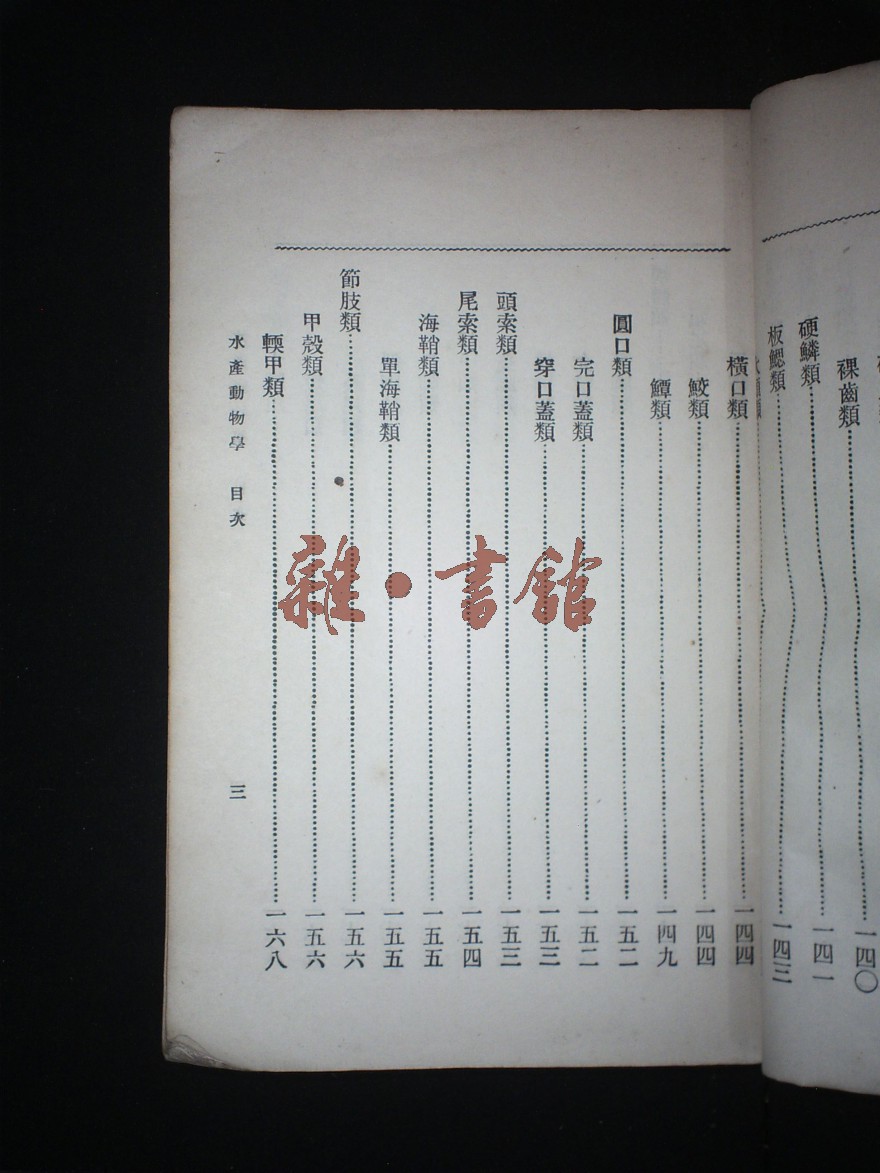 裸齒類……一四〇
硬鱗類……一四一
板鰓類……一四三
橫口類……一四四
鮫類……一四四
鱏類……一四九
圓口類……一五二
完口蓋類……一五二
穿口蓋類……一五三
頭索類……一五三
尾索類……一五四
海鞘類……一五五
單海鞘類……一五五
節肢類……一五六
甲殼類……一五六
輭甲類……一六八
水產動物學 目次
三
雜·書館